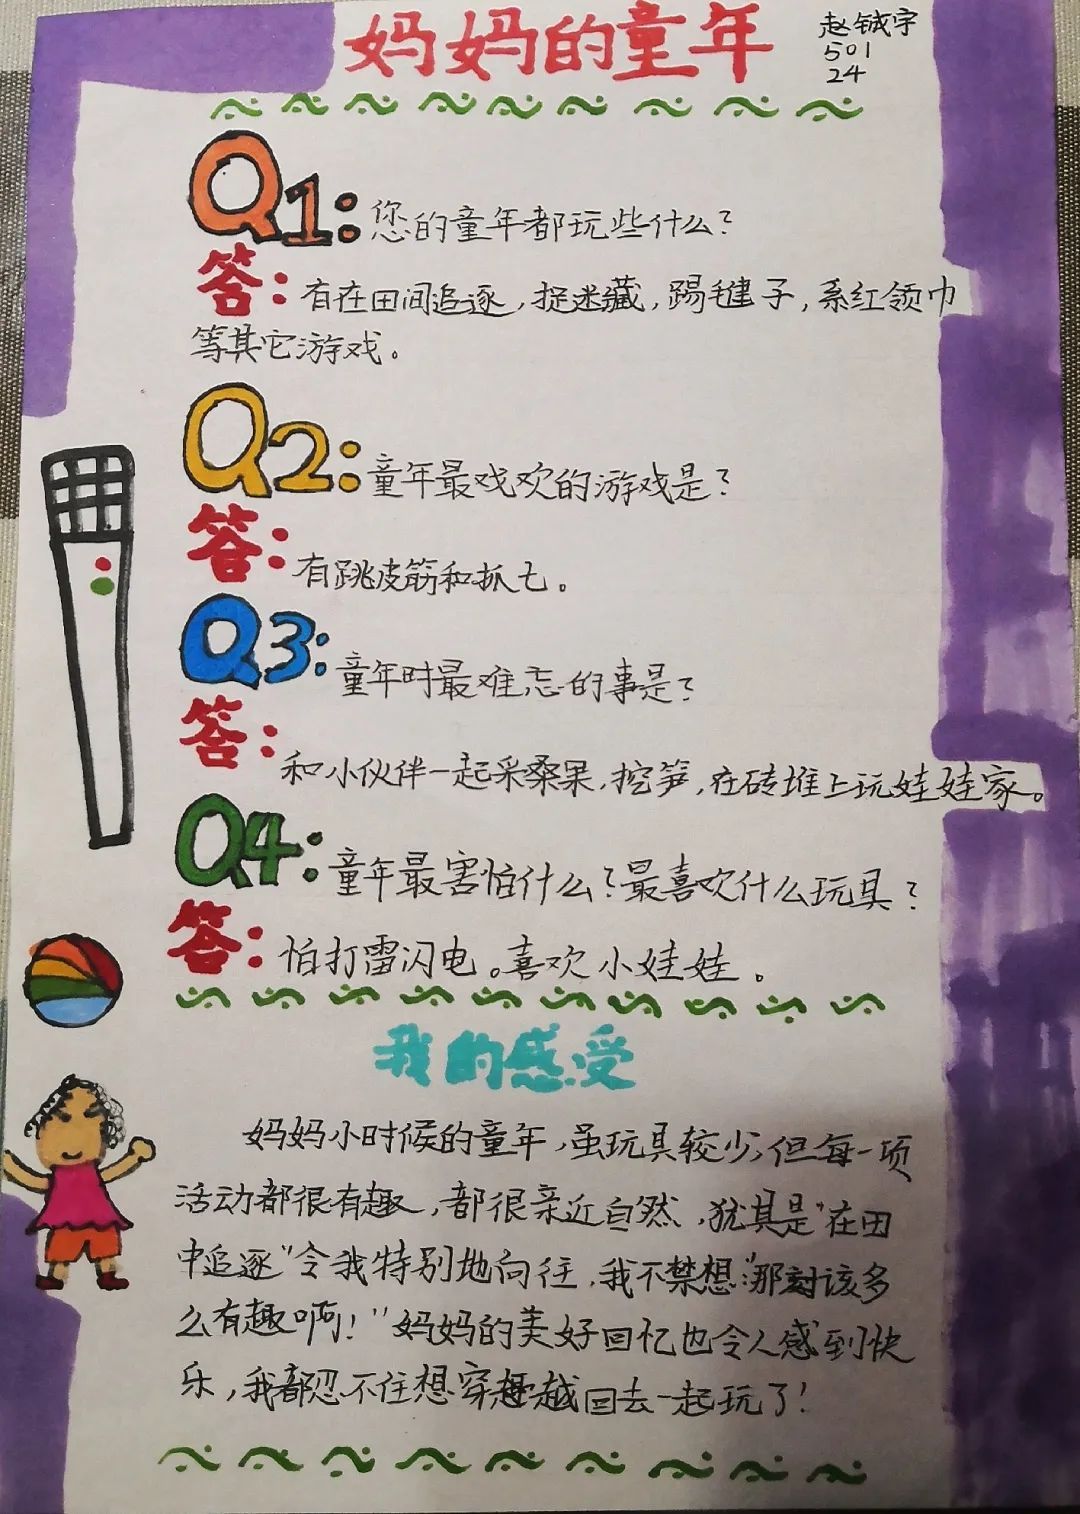 妈妈的童年
赵铖宇
501
24
Q1:您的童年都玩些什么?
答:有在田间追逐,捉迷藏,踢毽子,系红领巾
等其它游戏。
Q2:童年最戏欢的游戏是?
答:有跳皮筋和抓七。
Q3:童年时最难忘的事是?
答:和小伙伴一起采桑果,挖笋,在砖堆上玩娃娃家。
Q4:童年最害怕什么?最喜欢什么玩具?
答:怕打雷闪电。喜欢小娃娃。
我的感受
妈妈小时候的童年,虽玩具较少,但每一项
活动都很有趣,都很亲近自然,犹其是“在田
中追逐”令我特别地向往,我不禁想:“那该多
么有趣啊!”妈妈的美好回忆也令人感到快
乐,我都忍不住想穿越回去一起玩了!